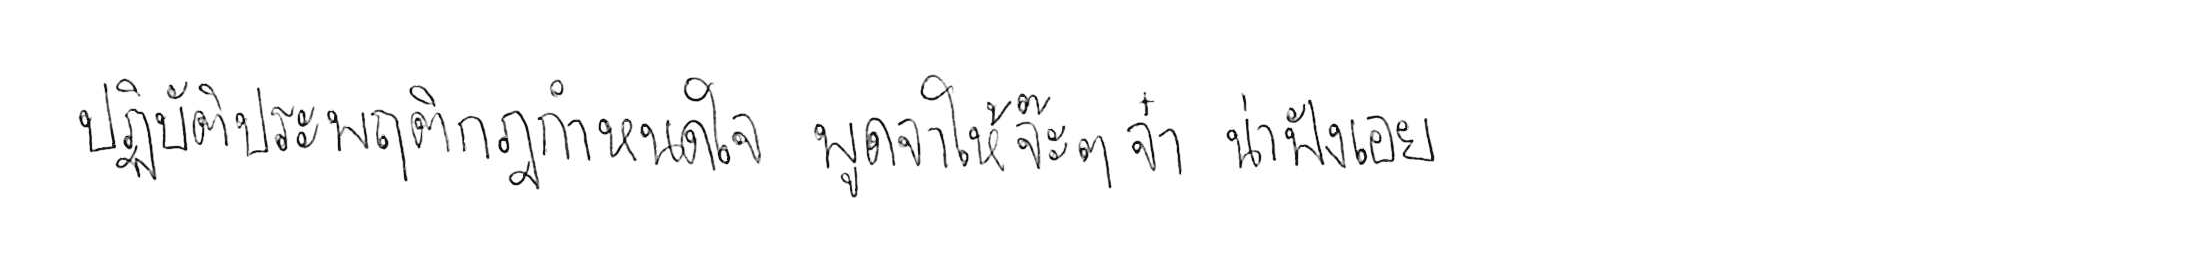 ปฏิบัติประพฤติกฎกำหนดใจ พูดจาให้จ๊ะๆ จ๋า น่าฟังเอย